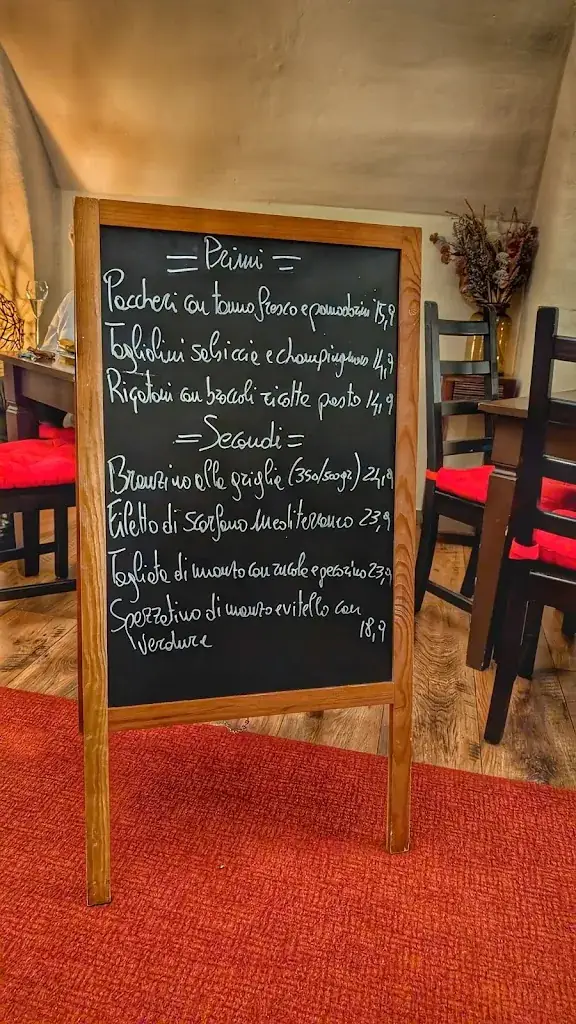 = Primi =
Paccheri con tonno fresco e pomodorini 15,9
Tagliolini salsiccia e champingnons 14,9
Rigatoni con broccoli ricotta pasto 14,9
= Secondi =
Branzino alla griglia (350/500gr) 24,9
Filetto di scorfano mediterraneo 23,9
Tagliata di manzo con rucola e pecorino 23,9
Spezzatino di manzo e vitello con
verdure 18,9